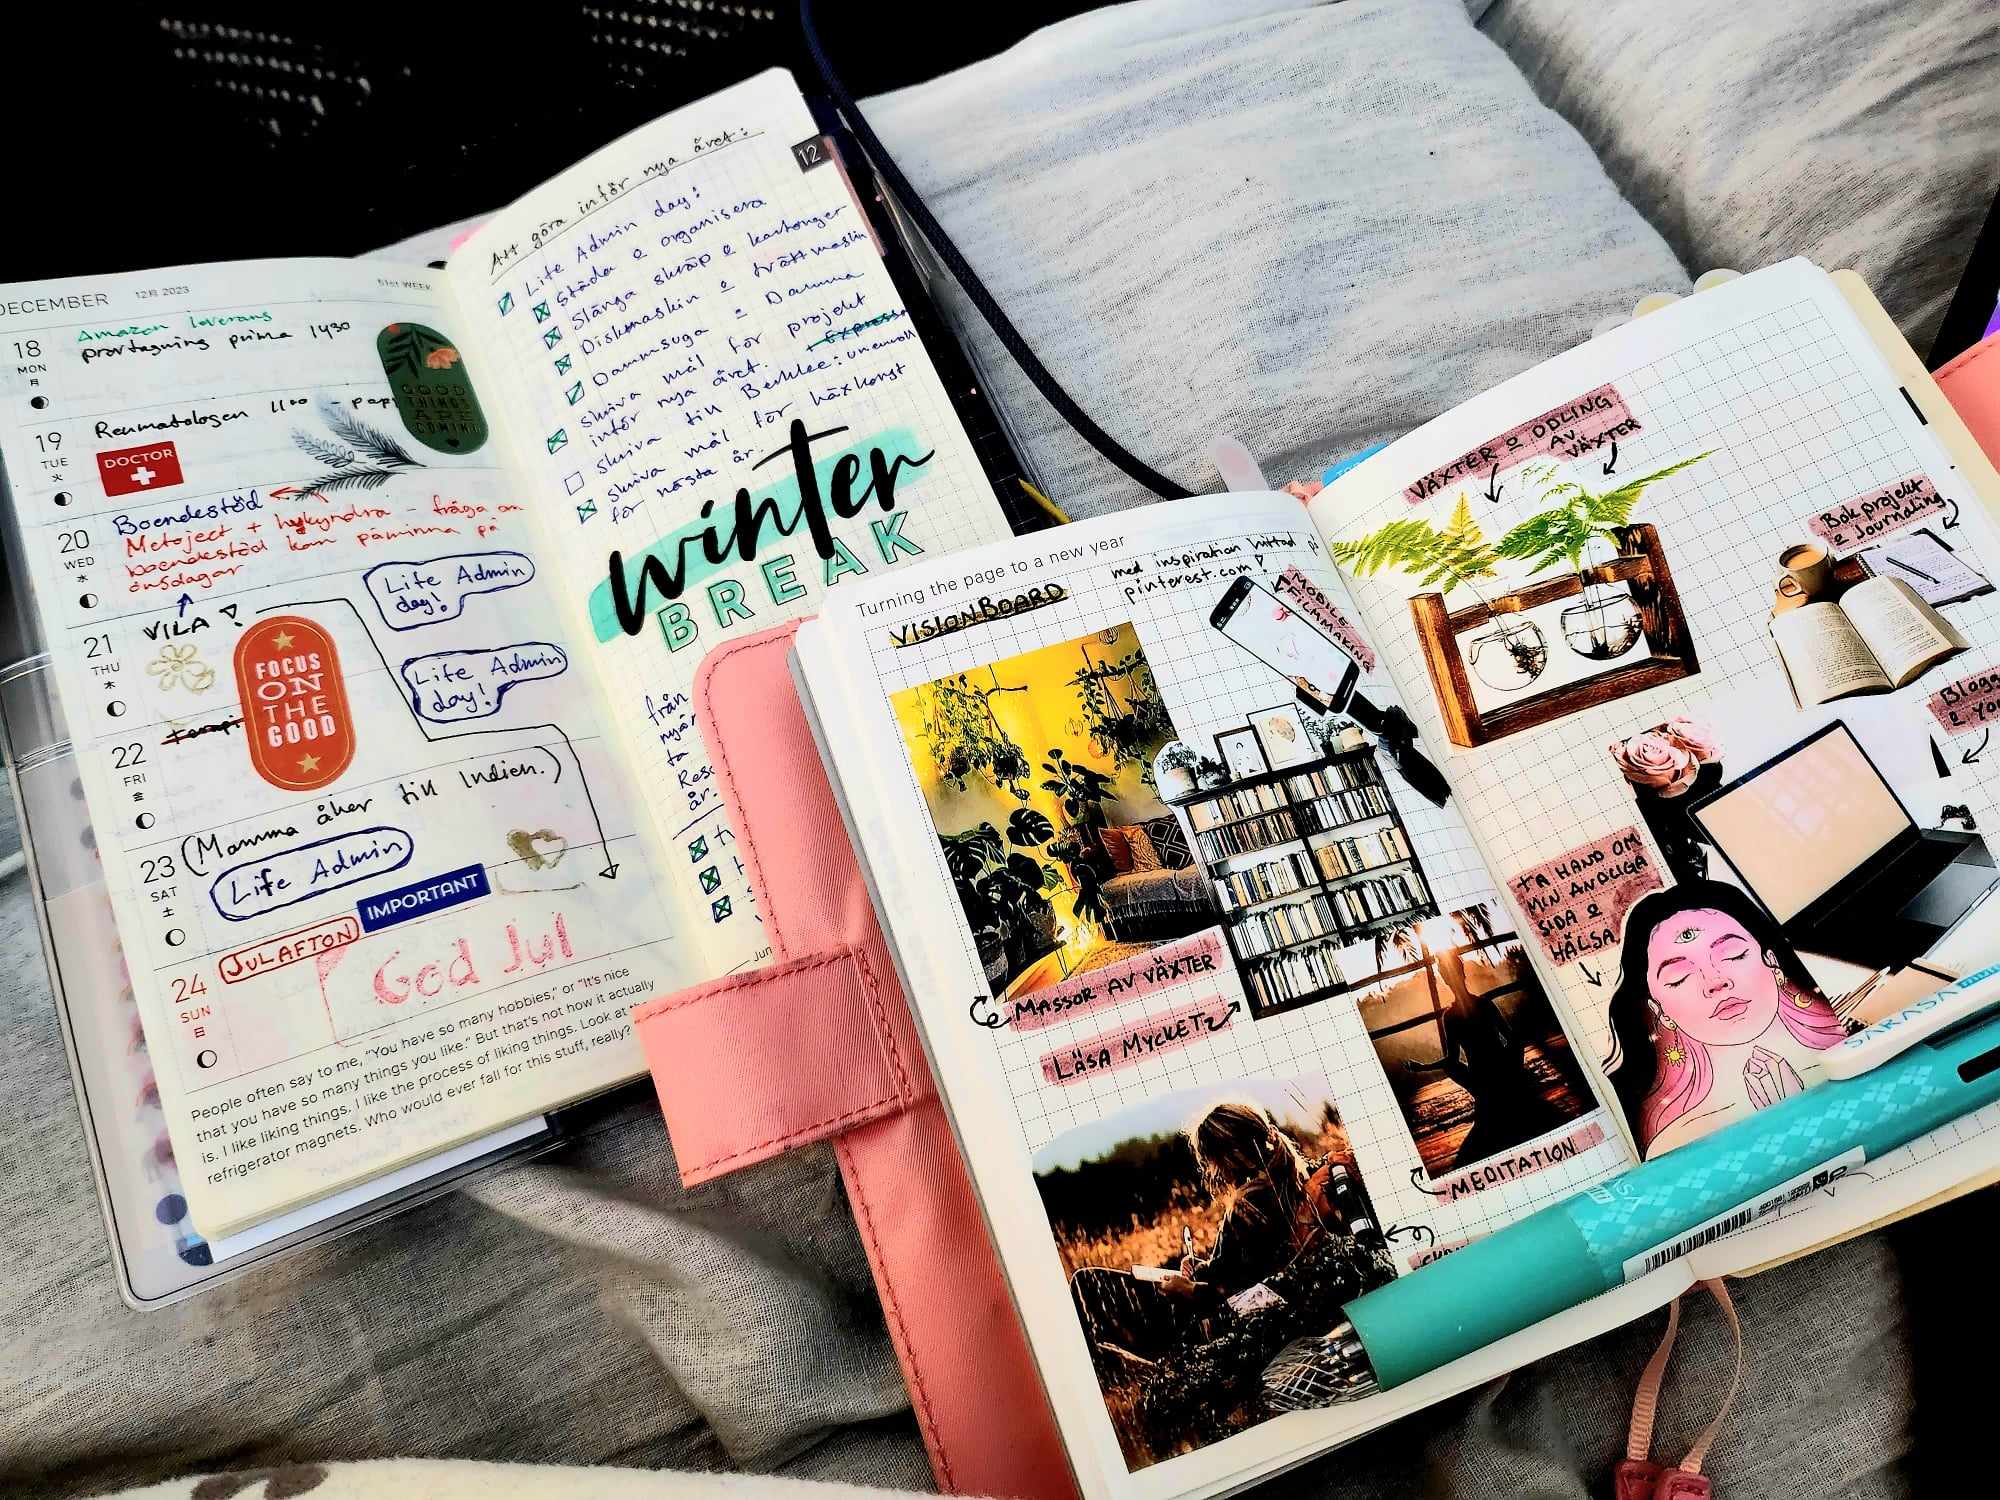 DECEMBER 12月 2023 51st WEEK
18
MON
月
Amazon leverans
provtagning prima 1430
GOOD
THINGS
ARE
COMING
19
TUE
火
Reumatologen 11:00 - papp
DOCTOR
20
WED
水
Boendestöd
Metoject + - fråga om
boendestöd kan påminna på
onsdagar
Life Admin
day!
21
THU
木
VILA!
FOCUS
ON
THE
GOOD
Life Admin
day!
22
FRI
金
Terapi
(Mamma åker till Indien.)
23
SAT
土
Life Admin
IMPORTANT
24
SUN
日
JULAFTON
God Jul
People often say to me, "You have so many hobbies," or "It's nice
that you have so many things you like." But that's not how it actually
is. I like liking things. I like the process of liking things. Look at
refrigerator magnets. Who would ever fall for this stuff, really?
12
Att göra inför nya året:
Life Admin day!
Städa o organisera
Slänga skräp o kartonger
Diskmaskin o tvättmaskin
Dammsuga o Damma
Skriva mål för projekt
inför nya året.
skriva till Berklee:
skriva mål för häxkonst
för nästa år.
winter
BREAK
från
ta
år.
Turning the page to a new year
VISIONBOARD
med inspiration hittad på
pinterest.com!
MOBILE
FILMMAKING
MASSOR AV VÄXTER
LÄSA MYCKET
MEDITATION
VÄXTER O ODLING
AV
VÄXTER
Bokprojekt
o Journaling
Blogg
TA HAND OM
MIN ANDLIGA
SIDA O
HÄLSA
SARASA